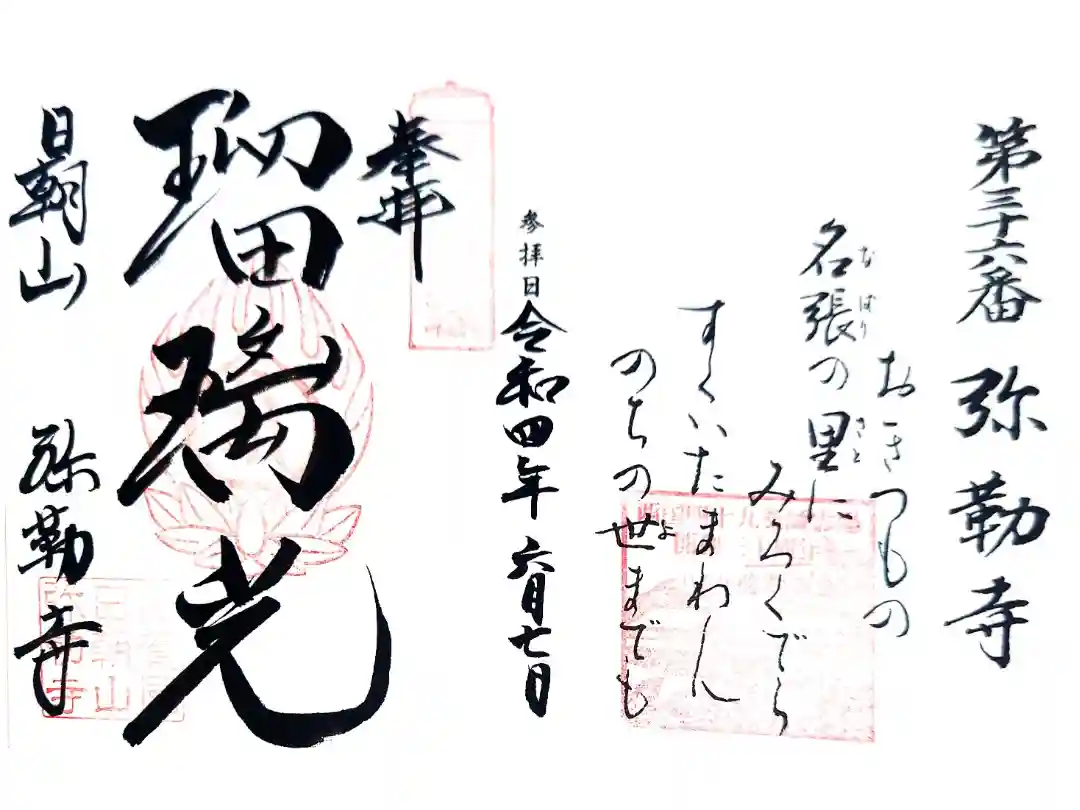 第三十六番 弥勒寺
おきつもの
名張の里に
なばり
さと
みろくでら
すくいたまわん
のちの世までも
よ
参拝日 令和四年 六月七日
奉拝
瑠璃光
日朝山 弥勒寺
日朝山
弥勒寺